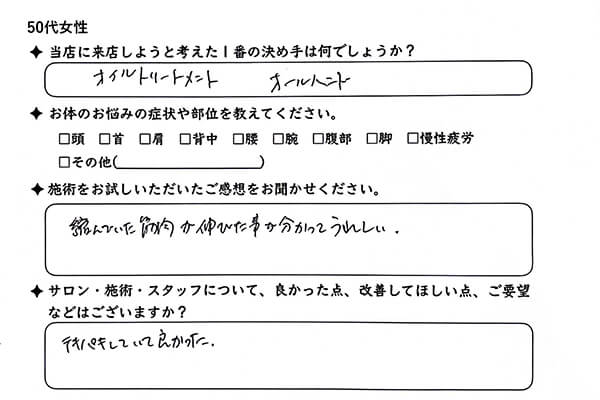 50代女性
✦ 当店に来店しようと考えた1番の決め手は何でしょうか？
オイルトリートメント　オールハンド
✦ お体のお悩みの症状や部位を教えてください。
□頭 □首 □肩 □背中 □腰 □腕 □腹部 □脚 □慢性疲労
□その他(　　　　　　　)
✦ 施術をお試しいただいたご感想をお聞かせください。
縮んでいた筋肉が伸びた事が分かってうれしい.
✦ サロン・施術・スタッフについて、良かった点、改善してほしい点、ご要望
などはございますか？
テキパキしていて良かった.